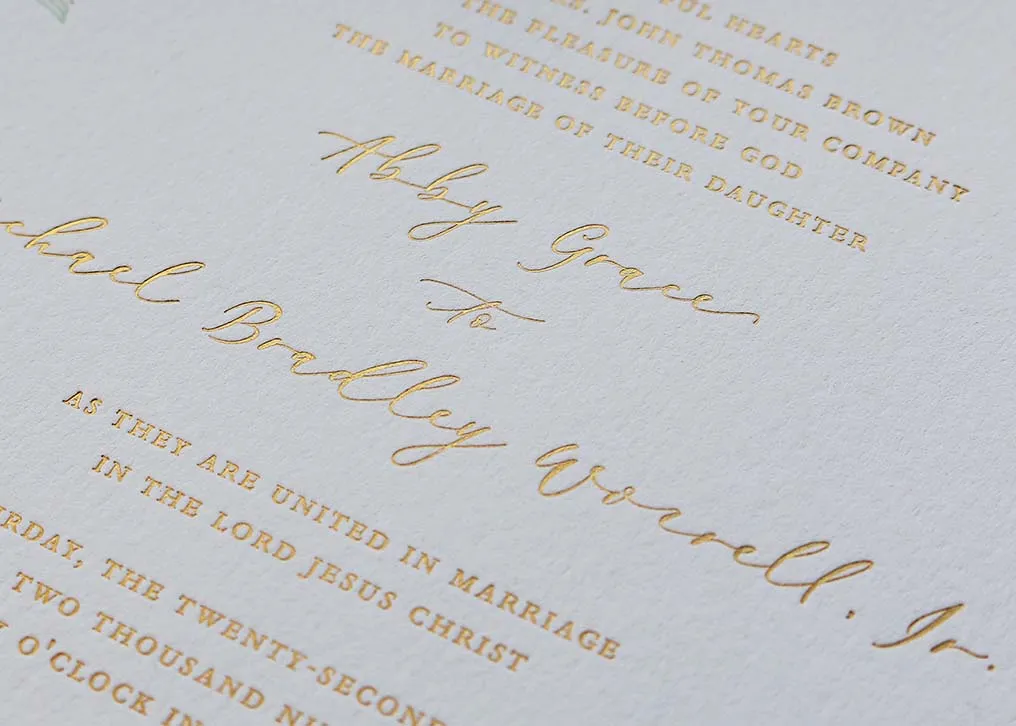 HEARTS
JOHN THOMAS BROWN
THE PLEASURE OF YOUR COMPANY
TO WITNESS BEFORE GOD
THE MARRIAGE OF THEIR DAUGHTER
Abby Grace
To
chael Bradley Worrell, Jr.
AS THEY ARE UNITED IN MARRIAGE
IN THE LORD JESUS CHRIST
URDAY, THE TWENTY-SECOND
TWO THOUSAND NI
O'CLOCK IN